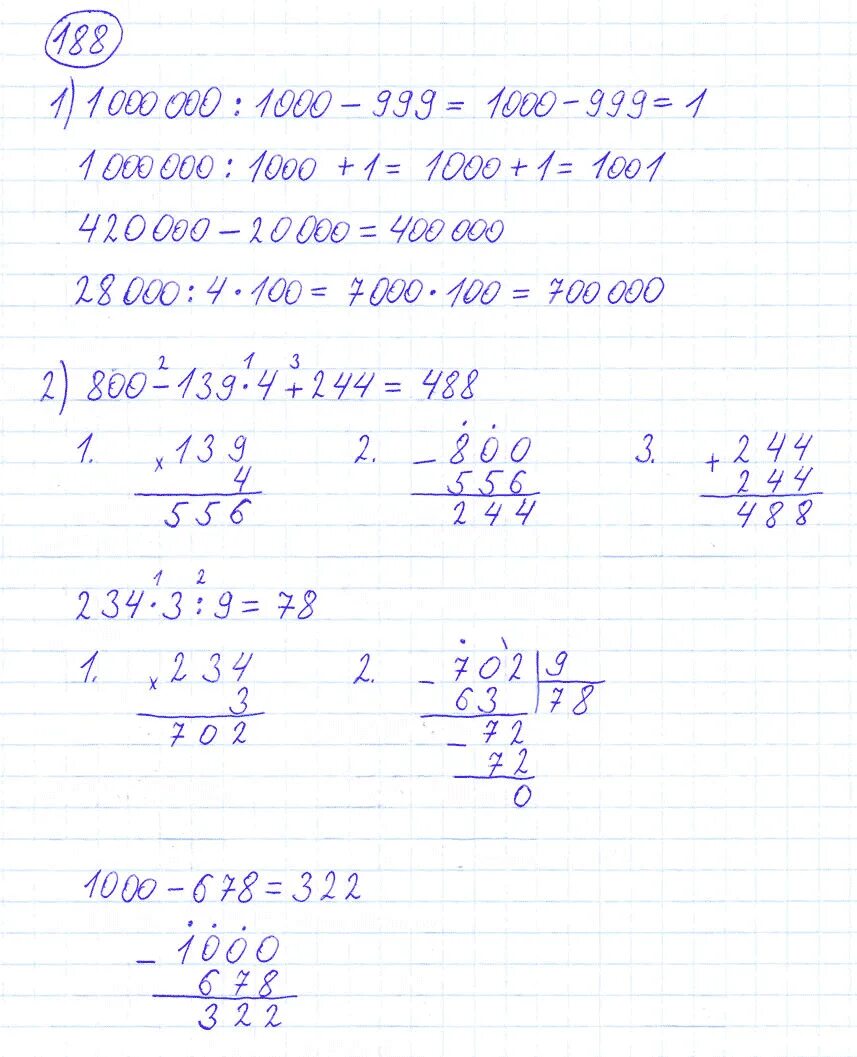 188
1) 1 000 000 : 1000 - 999 = 1000 - 999 = 1
1 000 000 : 1000 + 1 = 1000 + 1 = 1001
420 000 - 20 000 = 400 000
28 000 : 4 · 100 = 7000 · 100 = 700 000
2 1 3
2) 800 - 139 · 4 + 244 = 488
1. × 139 2. - 800 3. + 244
4 556 244
556 244 488
1 2
234 · 3 : 9 = 78
1. × 234 2. - 702 | 9
3 63 | 78
702 - 72
72
0
1000 - 678 = 322
- 1000
678
322